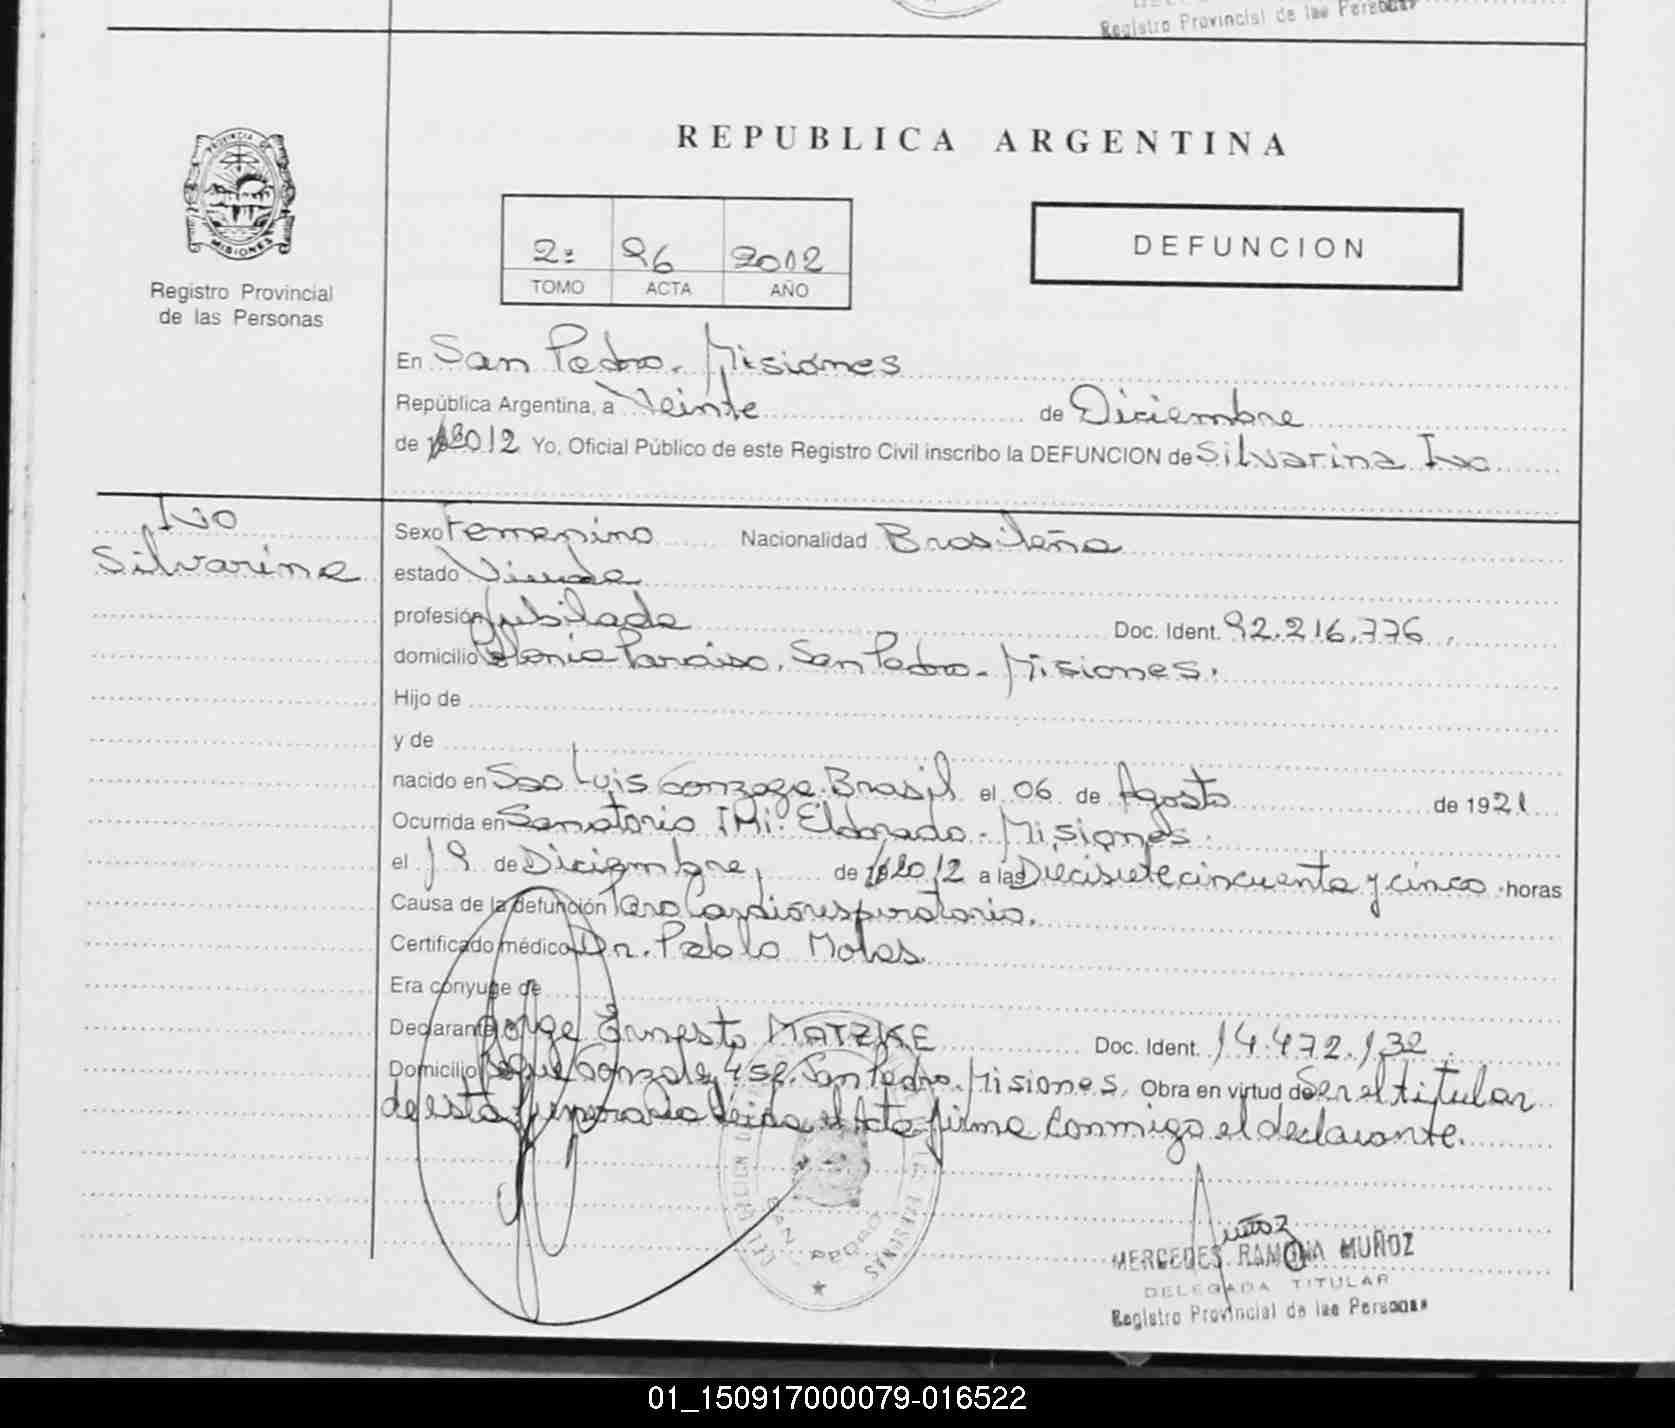 Registro Provincial de las Personas
REPUBLICA ARGENTINA
PROVINCIA DE
MISIONES
Registro Provincial
de las Personas
2º 96 2012
TOMO ACTA AÑO
DEFUNCION
En San Pedro. Misiones
República Argentina, a Veinte de Diciembre
de 2012 Yo, Oficial Público de este Registro Civil inscribo la DEFUNCION de Silvarina Ivo
Ivo
Silvarina
Sexo Femenino Nacionalidad Brasileña
estado Viuda
profesión Jubilada Doc. Ident. 92.216.776.
domicilio Colonia Paraiso. San Pedro - Misiones.
Hijo de
y de
nacido en Sao Luis Gonzaga. Brasil el 06 de Agosto de 1921
Ocurrida en Sanatorio IMi. Eldorado - Misiones.
el 19 de Diciembre de 2012 a las Diecisiete cincuenta y cinco horas
Causa de la defunción Paro Cardiorespiratorio.
Certificado médico Dr. Pablo Molas
Era cónyuge de
Declarante Jorge Ernesto MATZKE Doc. Ident. 14.472.132.
Domicilio Roque Gonzalez 458. San Pedro. Misiones. Obra en virtud de Ser el titular
de esta funeraria leida el Acta firma conmigo el declarante.
SAN PEDRO
Muñoz
MERCEDES RAMONA MUÑOZ
DELEGADA TITULAR
Registro Provincial de las Personas
01_150917000079-016522